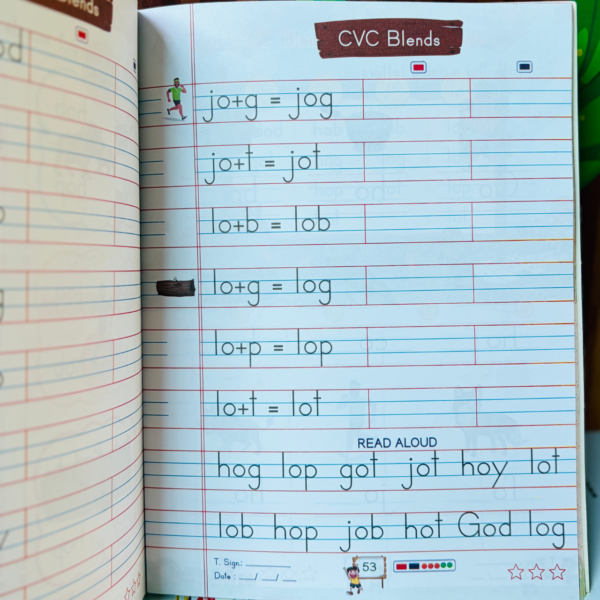 CVC Blends
jo+g = jog
jo+t = jot
lo+b = lob
lo+g = log
lo+p = lop
lo+t = lot
READ ALOUD
hog lop got jot hoy lot
lob hop job hot God log
T. Sign.: ________
Date : ___/___/___
53